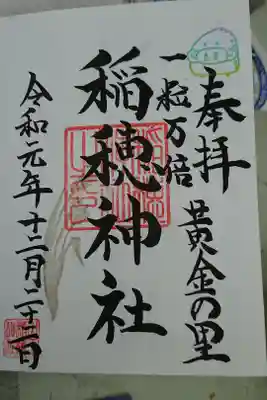 奉拝
黄金の里
一粒万倍
稲穂神社
令和元年十二月二十二日